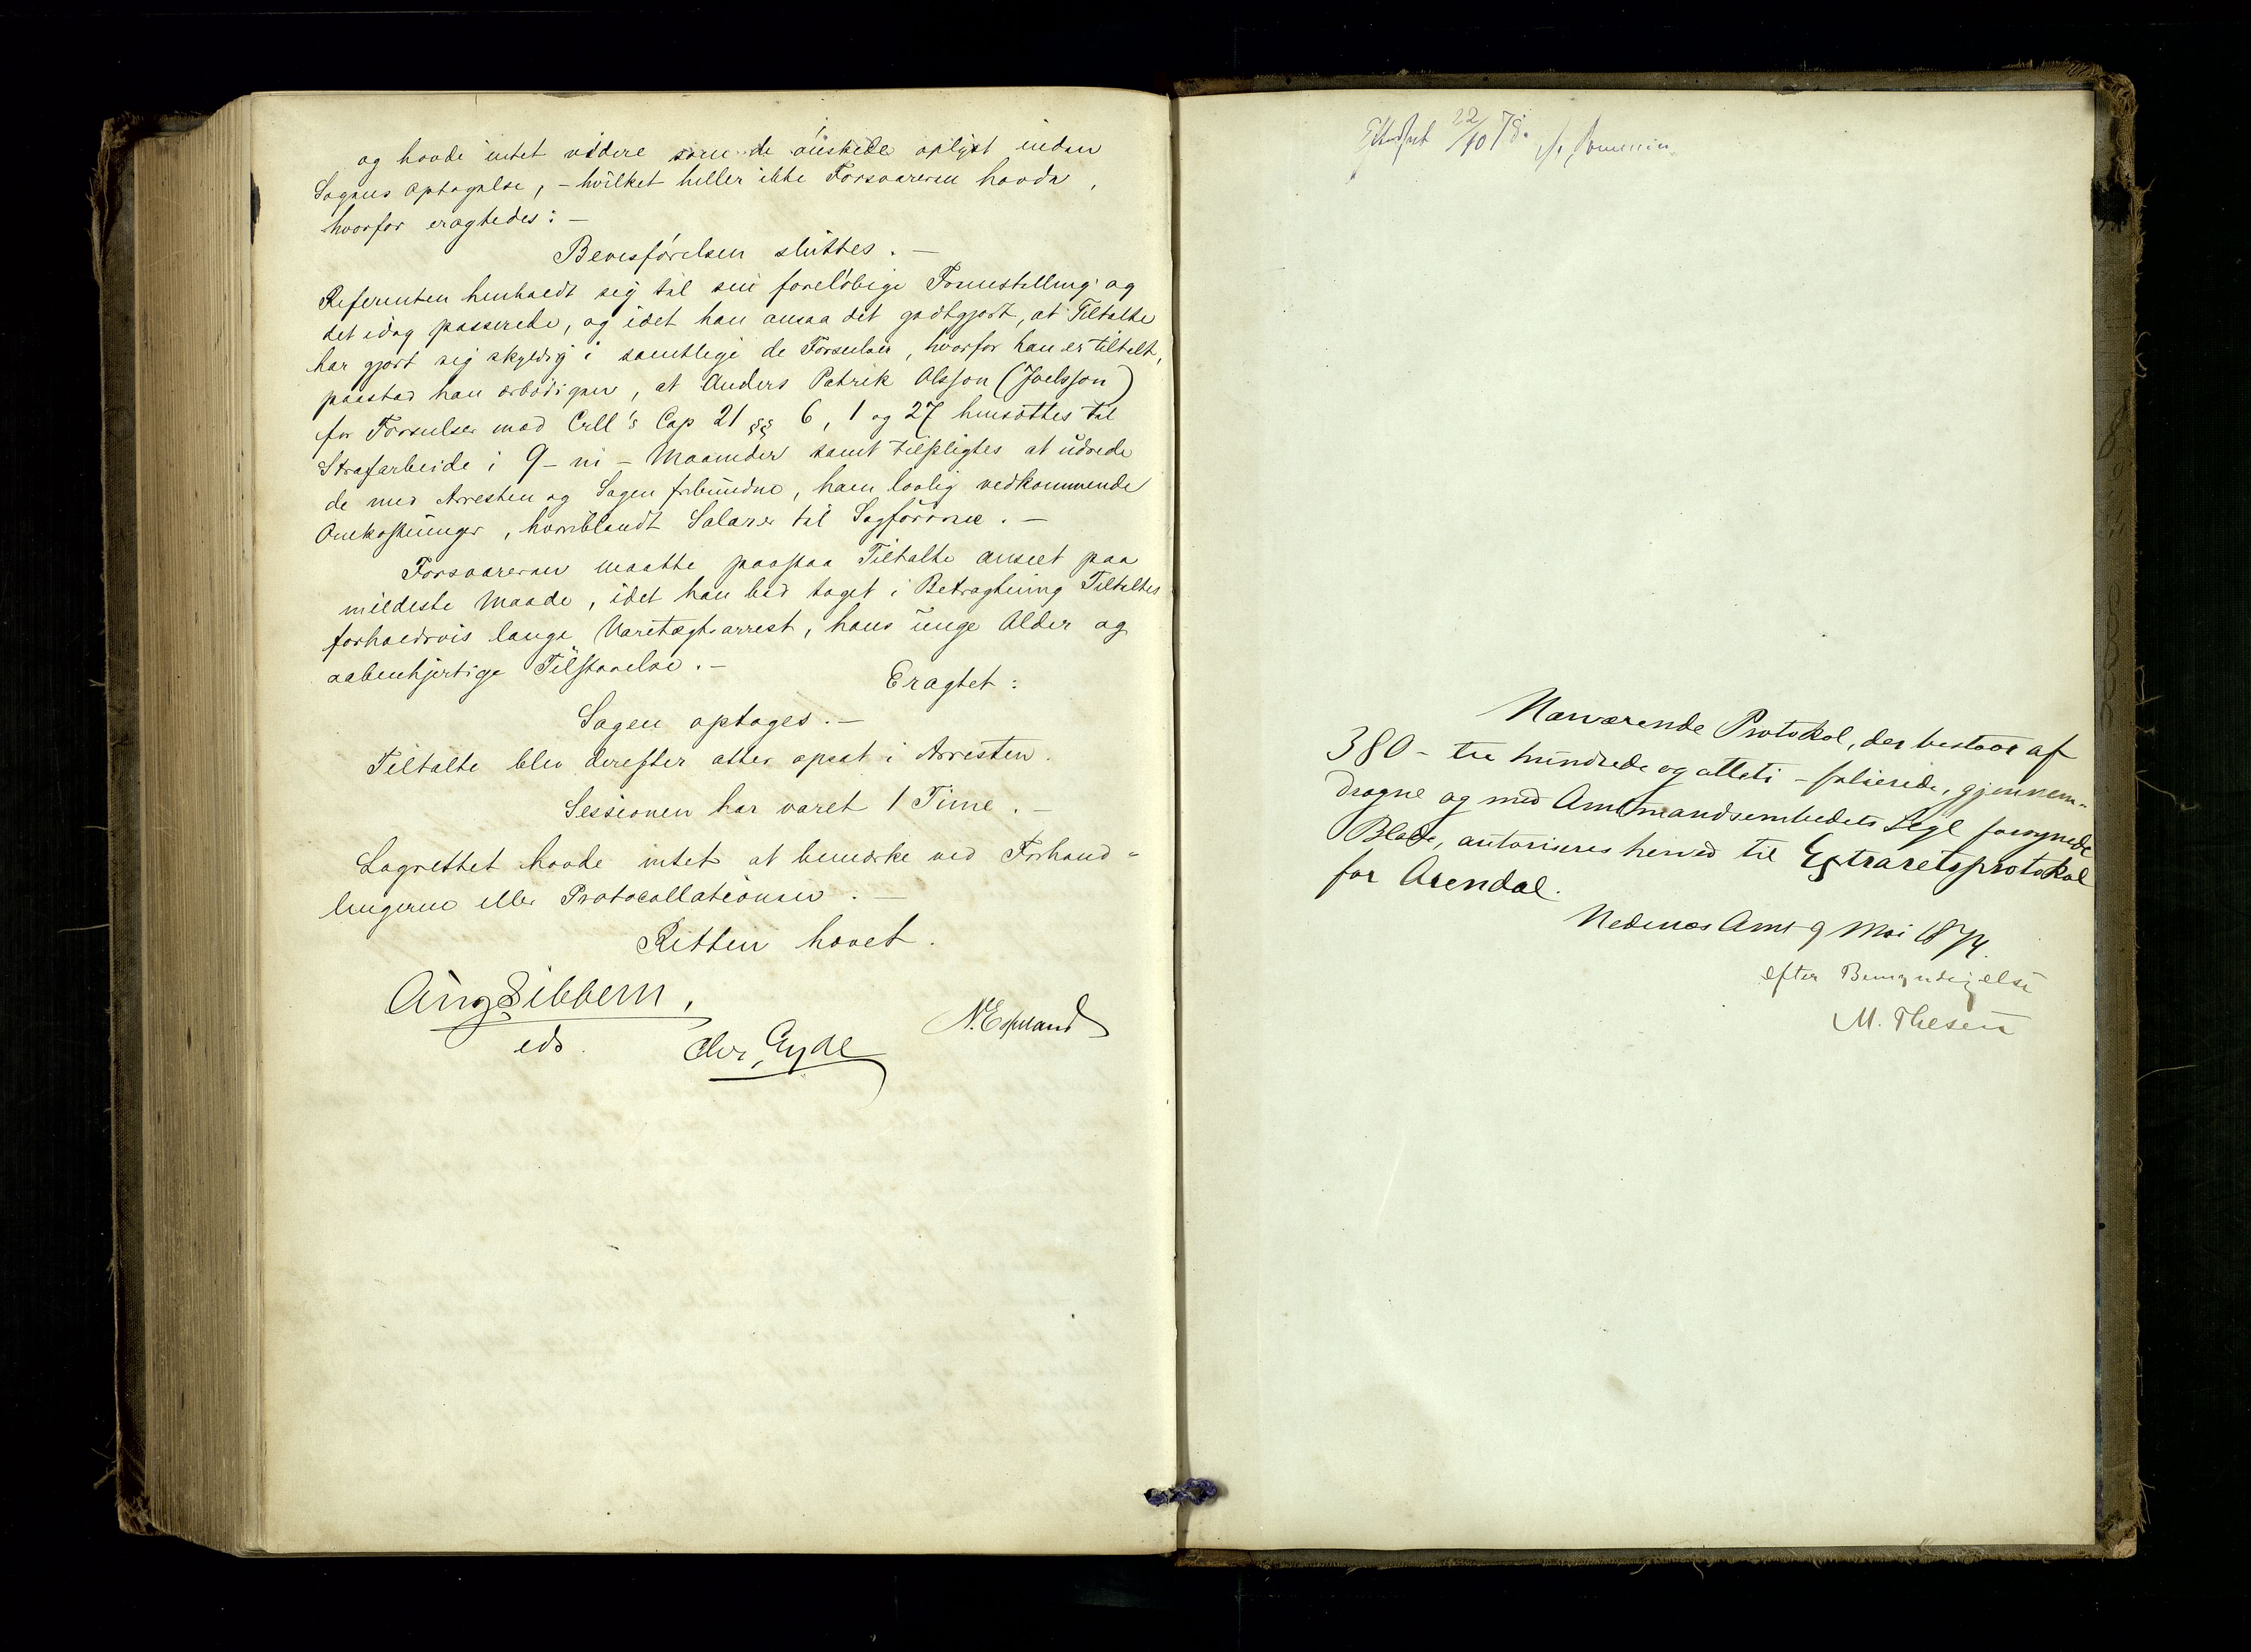 og havde intet videre som de ønskede oplyst inden
Sagens Optagelse, – hvilket heller ikke Forsvareren havde,
hvorfor eragtedes: –
Bevisførelsen sluttes. –
Referenten henholdt sig til sin foreløbige Fremstilling og
det idag passerede, og idet han ansaa det godtgjort, at Tiltalte
har gjort sig skyldig i samtlige de Forseelser, hvorfor han er tiltalt,
paastod han ærbødigen, at Anders Patrik Olsson (Joelsson)
for Forseelser mod Crll's Cap 21 §§ 6, 1 og 27 hensættes til
Strafarbeide i 9 – ni – Maaneder samt tilpligtes at udrede
de med Arresten og Sagen forbundne, ham lovlig vedkommende
Omkostninger, hvoriblandt Salarer til Sagførerne. –
Forsvareren maatte paastaa Tiltalte anseet paa
mildeste Maade, idet han bad taget i Betragtning Tiltaltes
forholdsvis lange Varetægtsarrest, hans unge Alder og
aabenhjertige Tilstaaelse. –
Eragtet:
Sagen optages. –
Tiltalte blev derefter atter opsat i Arresten.
Sessionen har varet 1 Time. –
Lagrettet havde intet at bemærke ved Forhand-
lingerne eller Protocollationen. –
Retten hævet.
Aug Sibbern,
eds.
Chr. Eyde
Nærværende Protokol, der bestaar af
380 – tre hundrede og otteti – folierede, gjennem-
dragne og med Amtmandsembedets Segl forsynede
Blade, autoriseres herved til Extraretsprotokol
for Arendal.
Nedenæs Amt 9 Mai 1874.
efter Bemyndigelse
M. Thesen
22/10 78.